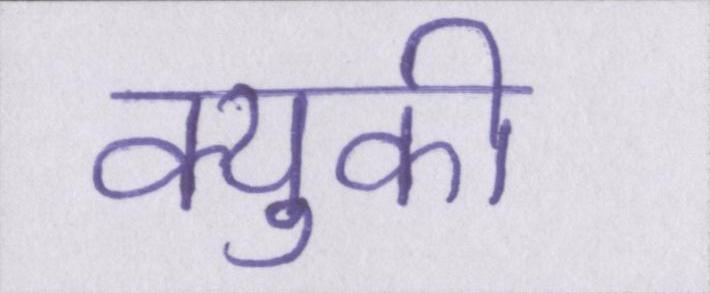 क्युकी